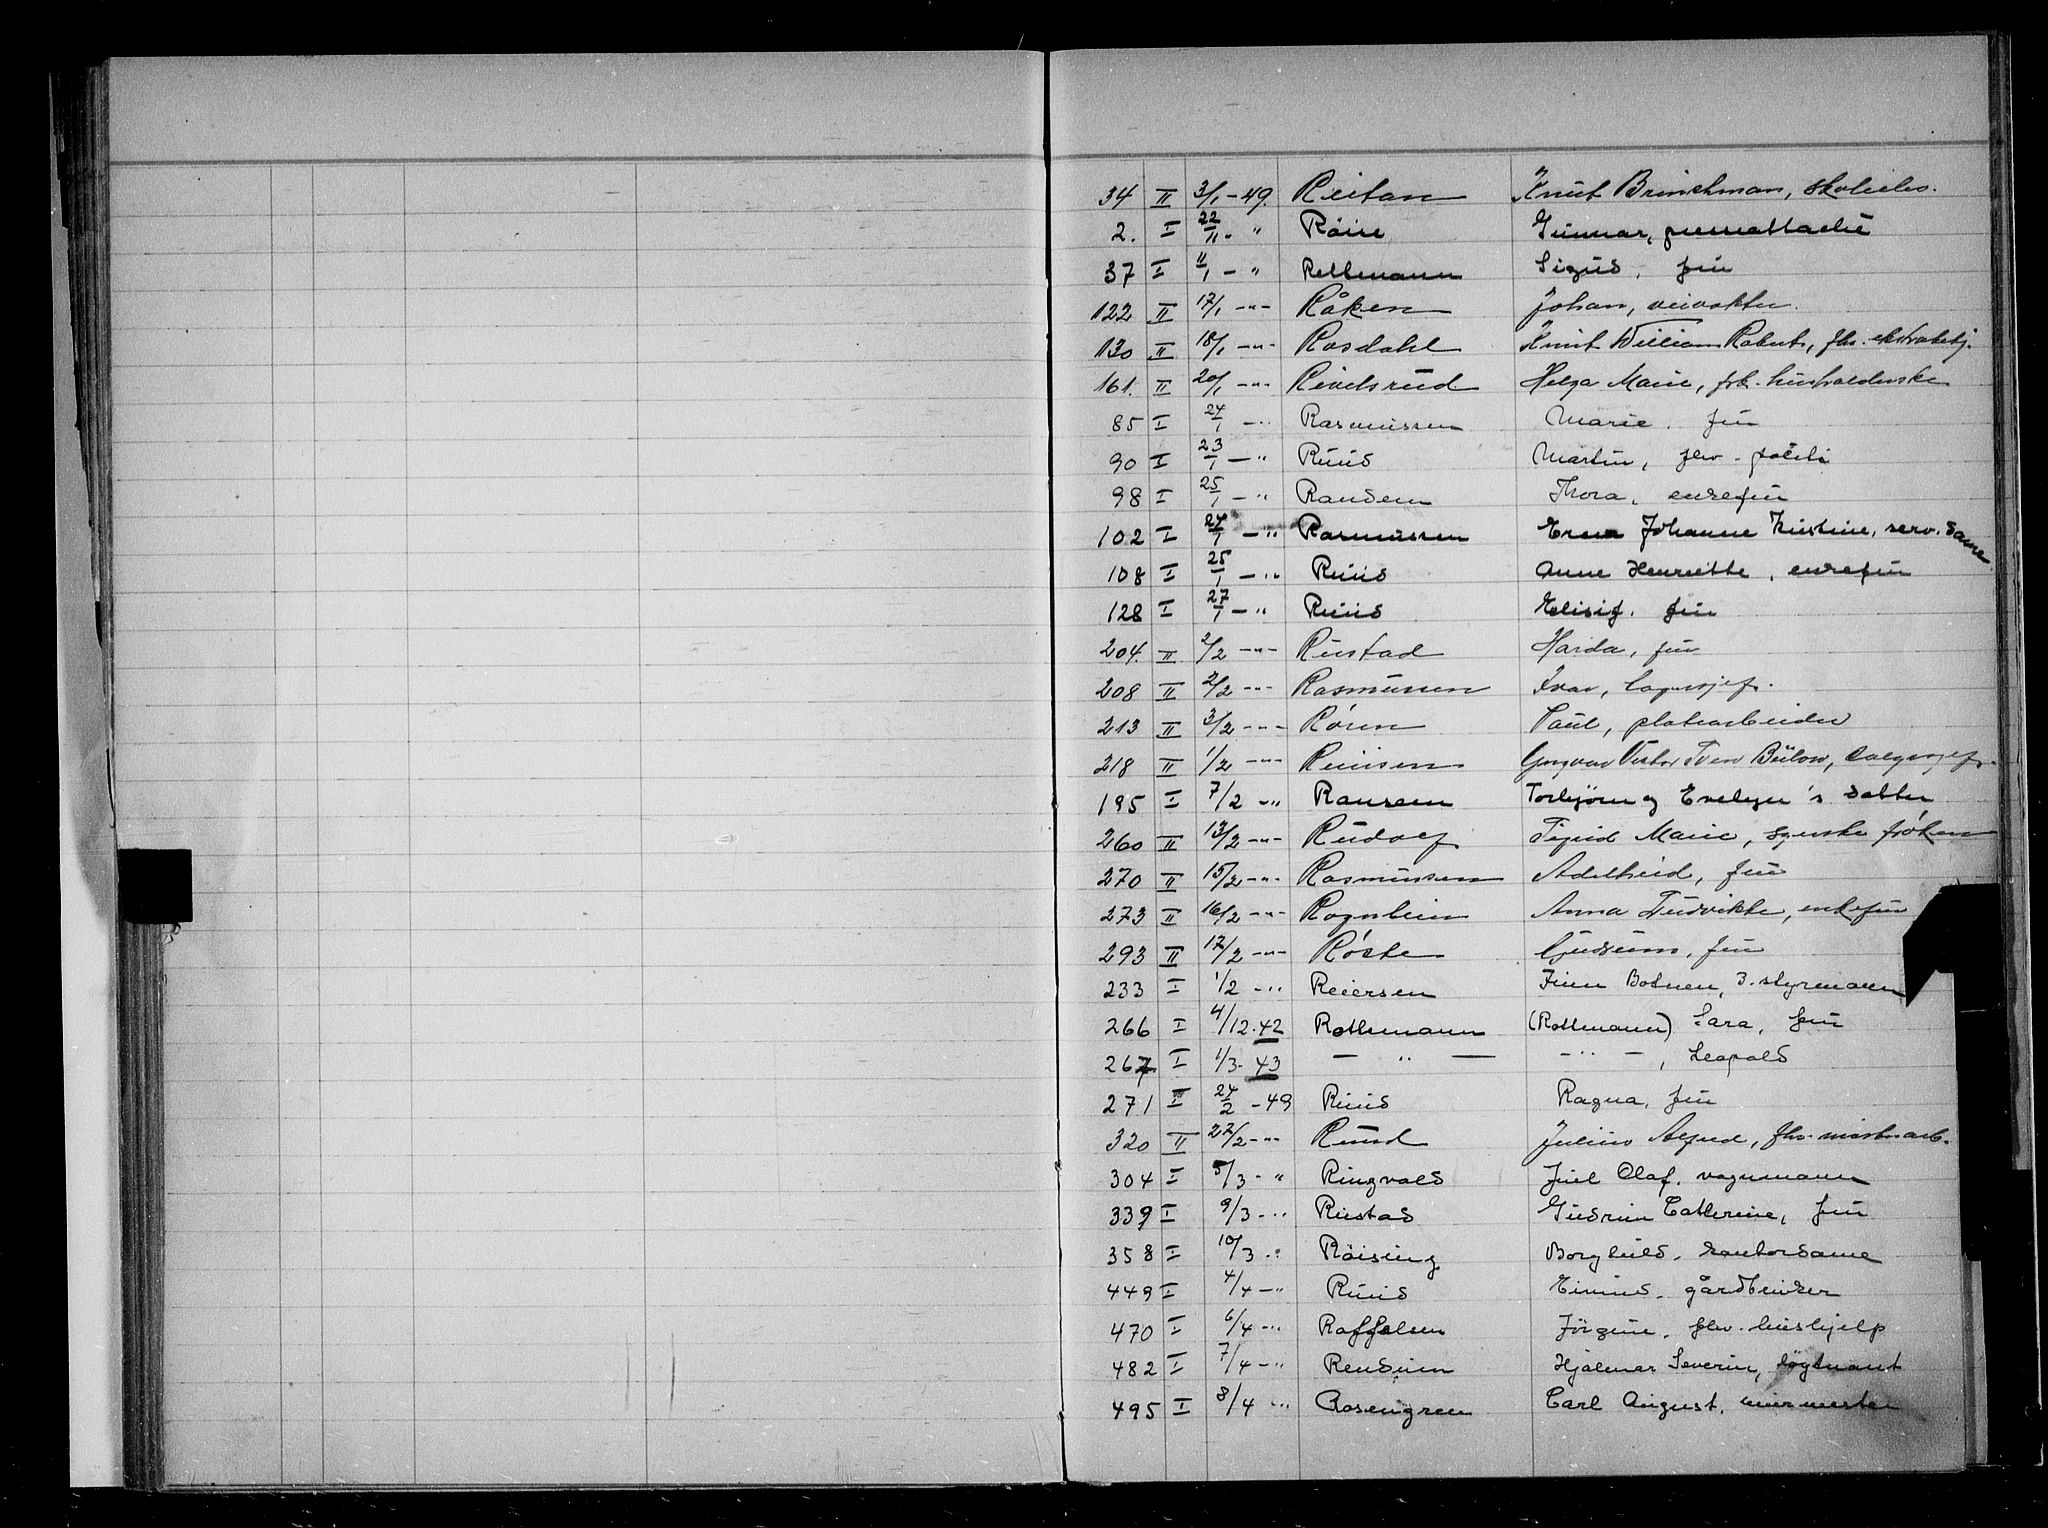 34 II 3/1 - 49. Reitan Knut Brinchman, skoleelev.
2. I 22/11 - " Röise Gunnar, presseattaché
37 I 11/1 - " Rettmann Sigrid, fru
122 II 17/1 -"- Råken Johan, veivokter.
130 II 18/1 -"- Rosdahl Knut William Robert, fhv.
161. II 20/1 -"- Rivelsrud Helga Marie, frk. husholderske
85 I 24/1 - " Rasmussen Marie, fru
90 I 23/1 - " Ruud Martin, fhv. politi
98 I 25/1 - " Randem Thora, enkefru
102 I 24/1 - " Rasmussen Erna Johanne Kristine, serv. dame
108 I 25/1 - " Ruud Anne Henriette, enkefru
128 I 27/1 - " Ruud Elisif, fru
204. II 2/2 -"- Rustad Harda, fru
208 II 2/2 -"- Rasmussen Ivar, lagersjef.
213 II 3/2 -"- Røren Paul, platearbeider
218 II 1/2 -"- Ruüsen Yngvar Victor Sven Bülow, salgssjef.
195 I 7/2 - " Ransem Torbjörn og Evelyn's datter
260 II 13/2 -"- Rudolf Sigrid Marie, frøken
270 II 15/2 -"- Rasmussen Adelheid, fru
273 II 16/2 -"- Rognlien Anna Ludvikke, enkefru
293 II 17/2 -"- Røste Gudrun, fru
233 I 1/2 - " Reiersen Finn Botnen, 3. styrmann
266 I 4/12. 42 Rothmann (Rottmann) Sara, fru
267 I 1/3. 43 — " — - " -, Leopold
271 I 24/2 - 49 Ruud Ragna, fru
320 II 27/2 -"- Rund Julius Alfred, fhv.
304 I 5/3 - " Ringvold Juel Olaf, vognmann
339 I 9/3 - " Rustad Gudrun Catherine, fru
358 I 10/3 - " Röising Borghild, kontordame
449 I 4/4 - " Ruud Eimund, gårdbruker
470 I 6/4 - " Raffelsen Jörgine, fhv. hushjelp
482 I 7/4 - " Rendum Hjalmar Severin, löytnant
495 I 8/4 - " Rosengren Carl August, murmester